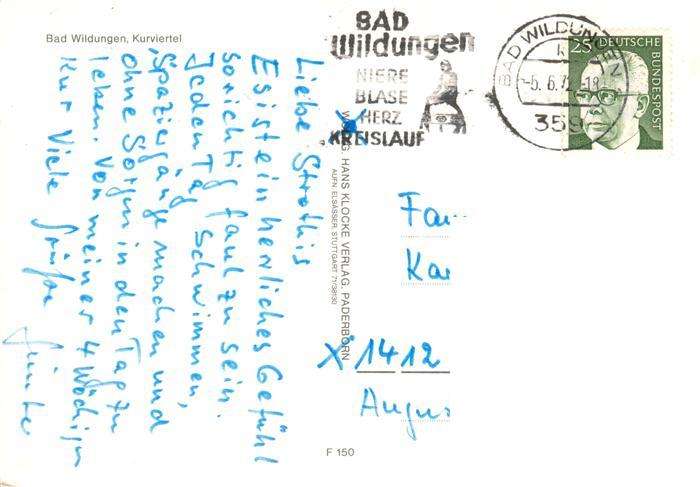 Bad Wildungen, Kurviertel
BAD
Wildungen
NIERE
BLASE
HERZ
KREISLAUF
BAD WILDUNGEN
-5.6.72-18
359
25 DEUTSCHE
BUNDESPOST
Liebe Strothis
Es ist ein herrliches Gefühl
so richtig faul zu sein.
Jeden Tag schwimmen,
Spaziergänge machen und
ohne Sorgen in den Tag zu
leben. Von meiner 4 Wöchigen
Kur Viele Grüße
Günter
HANS KLOCKE VERLAG, PADERBORN
AUFN. ELSÄSSER, STUTTGART
Fa
Ka
1412
Augu
F 150